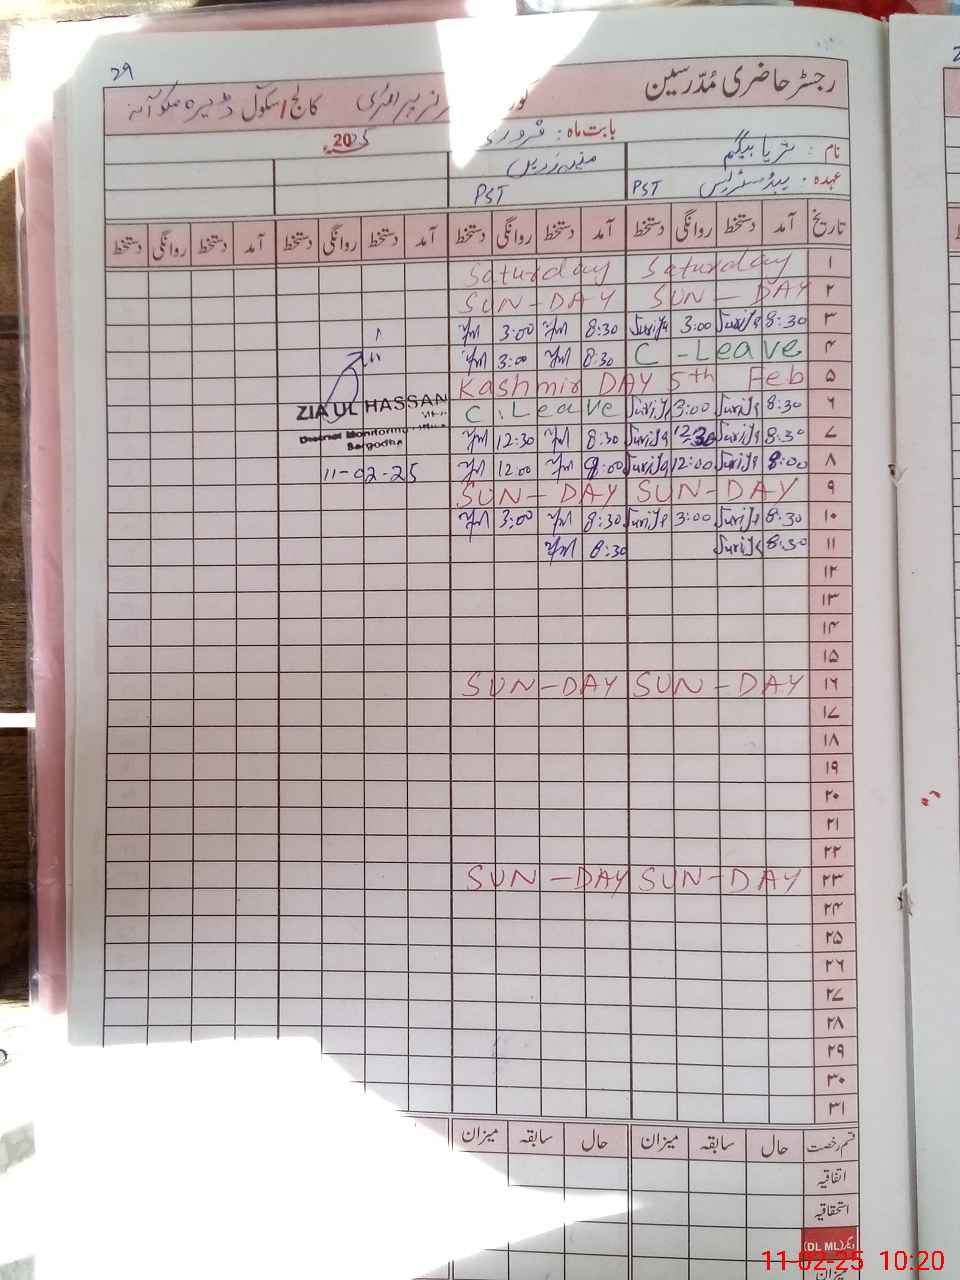 29
رجسٹر حاضری مُدّرسین پرائمری کالج / سکول ڈیرہ
بابت ماہ : فروری 2025
نام : ثریا بیگم
عہدہ : ہیڈ مسٹریس PST PST
تاریخ آمد دستخط روانگی دستخط آمد دستخط روانگی دستخط آمد دستخط روانگی دستخط آمد دستخط روانگی دستخط
۱ Saturday Saturday
۲ SUN - DAY SUN - DAY
۳ 8:30 3:00 8:30 3:00
۴ C - Leave 8:30 3:00
۵ Kashmir DAY 5th Feb
۶ 8:30 3:00 C. Leave
ZIA UL HASSAN
۷ 8:30 12:30 8:30 12:30
District Monitoring
Sargodha
۸ 8:00 12:00 8:00 12:00
11-02-25
۹ SUN - DAY SUN - DAY
۱۰ 8:30 3:00 8:30 3:00
۱۱ 8:30 8:30
۱۲
۱۳
۱۴
۱۵
۱۶ SUN - DAY SUN - DAY
۱۷
۱۸
۱۹
۲۰
۲۱
۲۲
۲۳ SUN - DAY SUN - DAY
۲۴
۲۵
۲۶
۲۷
۲۸
۲۹
۳۰
۳۱
قسم رخصت حال سابقہ میزان حال سابقہ میزان
اتفاقیہ
استحقاقیہ
دیگر (DL ML)
میزان
11-02-25 10:20